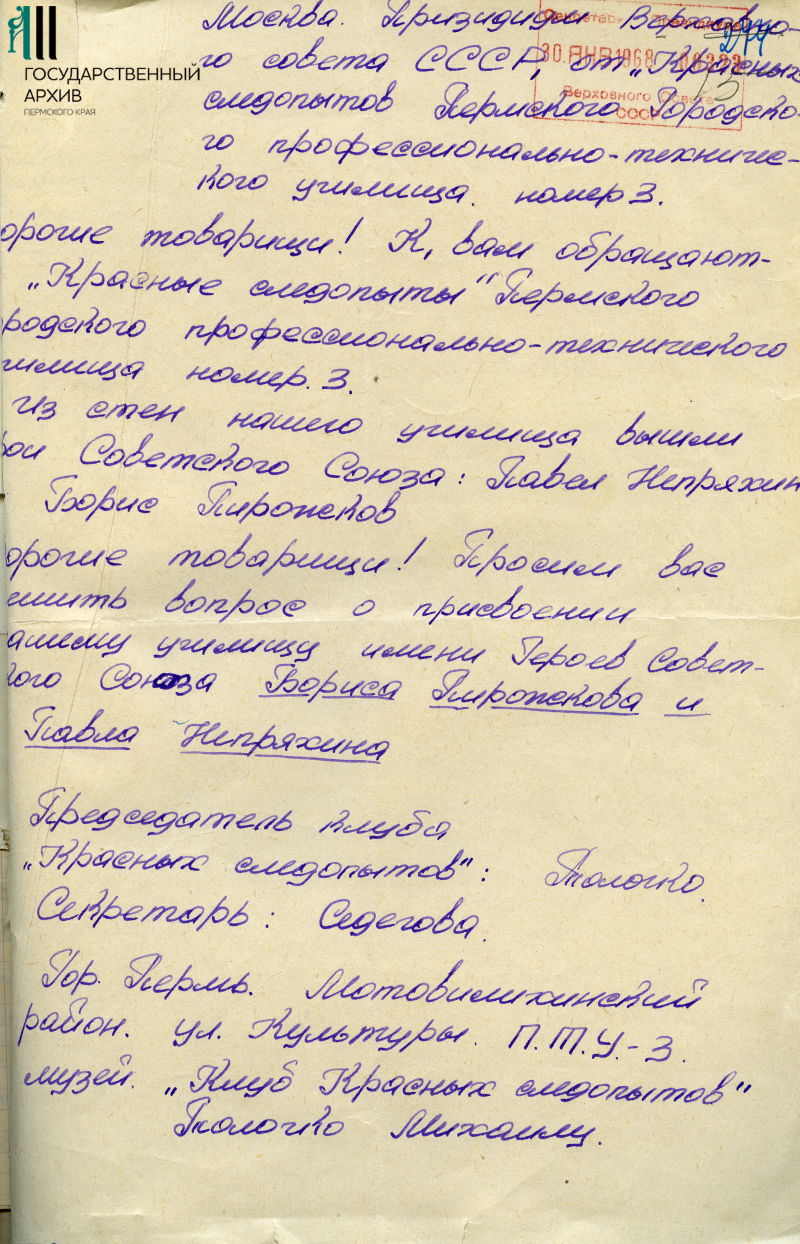 ГОСУДАРСТВЕННЫЙ
АРХИВ
ПЕРМСКОГО КРАЯ
30 ЯНВ 1968
Верховного Совета
СССР
Москва. Призидиум Верховно-
го совета СССР, от „Красных
следопытов Пермского Городско-
го профессионально-техниче-
кого училища. номер 3.
орогие товарищи! К, вам обращают-
„Красные следопыты" Пермского
родского профессионально-технического
илища номер. 3.
Из стен нашего училища вышли
рои Советского Союза: Павел Непряхин
Борис Пирожков
орогие товарищи! Просим вас
ешить вопрос о присвоении
ашему училищу имени Героев Совет-
кого Союза Бориса Пирожкова и
Павла Непряхина
Председатель клуба
„Красных следопытов": Толочко.
Секретарь: Седегова.
Гор. Пермь. Мотовилихинский
район. ул. Культуры. П.Т.У-3.
музей. „Клуб Красных следопытов"
Толочко Михаилу.